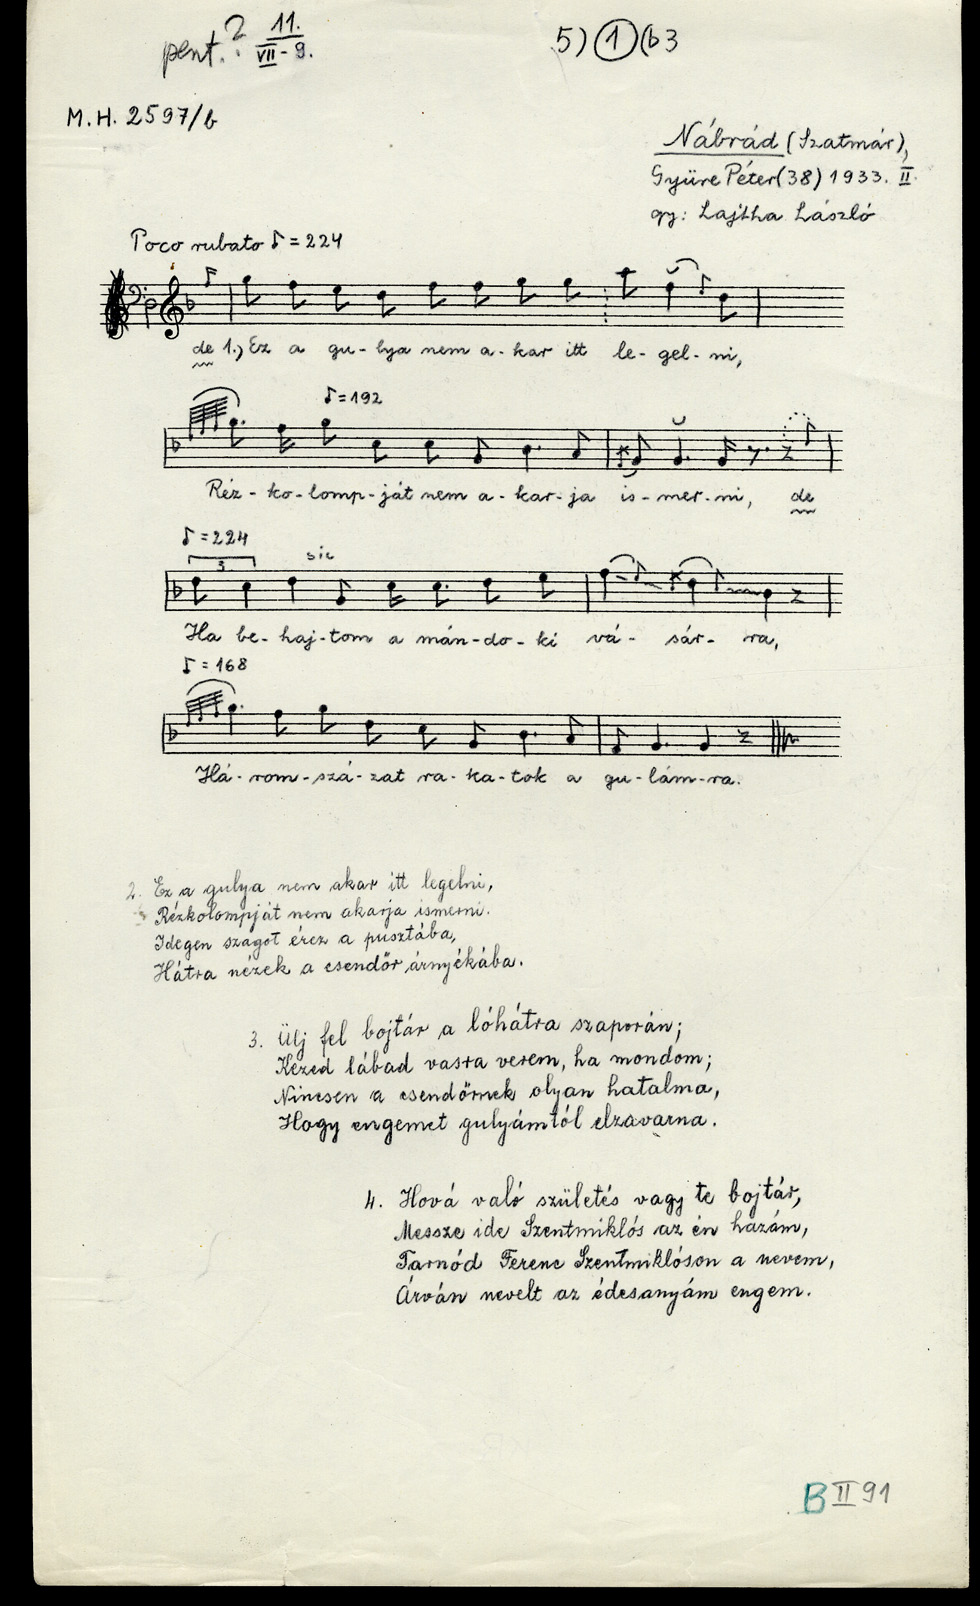 pent.? 11.
VII-9.
5) 1 (b3
M.H. 2597/b
Nábrád (Szatmár),
Gyüre Péter (38) 1933. II.
gy: Lajtha László
Poco rubato ♪ = 224
de 1.) Ez a gu-lya nem a-kar itt le-gel-ni,
♪ = 192
Réz-ko-lomp-ját nem a-kar-ja is-mer-ni, de
♪ = 224
3 sic
Ha be-haj-tom a mán-do-ki vá-sár-ra,
♪ = 168
Há-rom-szá-zat ra-ka-tok a gu-lám-ra.
2. Ez a gulya nem akar itt legelni,
Rézkolompját nem akarja ismerni.
Idegen szagot érez a pusztába,
Hátra nézek a csendőr árnyékába.
3. Ülj fel bojtár a lóhátra szaporán;
Kezed lábad vasra verem, ha mondom;
Nincsen a csendőrnek olyan hatalma,
Hogy engemet gulyámtól elzavarna.
4. Hová való születés vagy te bojtár,
Messze ide Szentmiklós az én hazám,
Tarnód Ferenc Szentmiklóson a nevem,
Árván nevelt az édesanyám engem.
B II 91